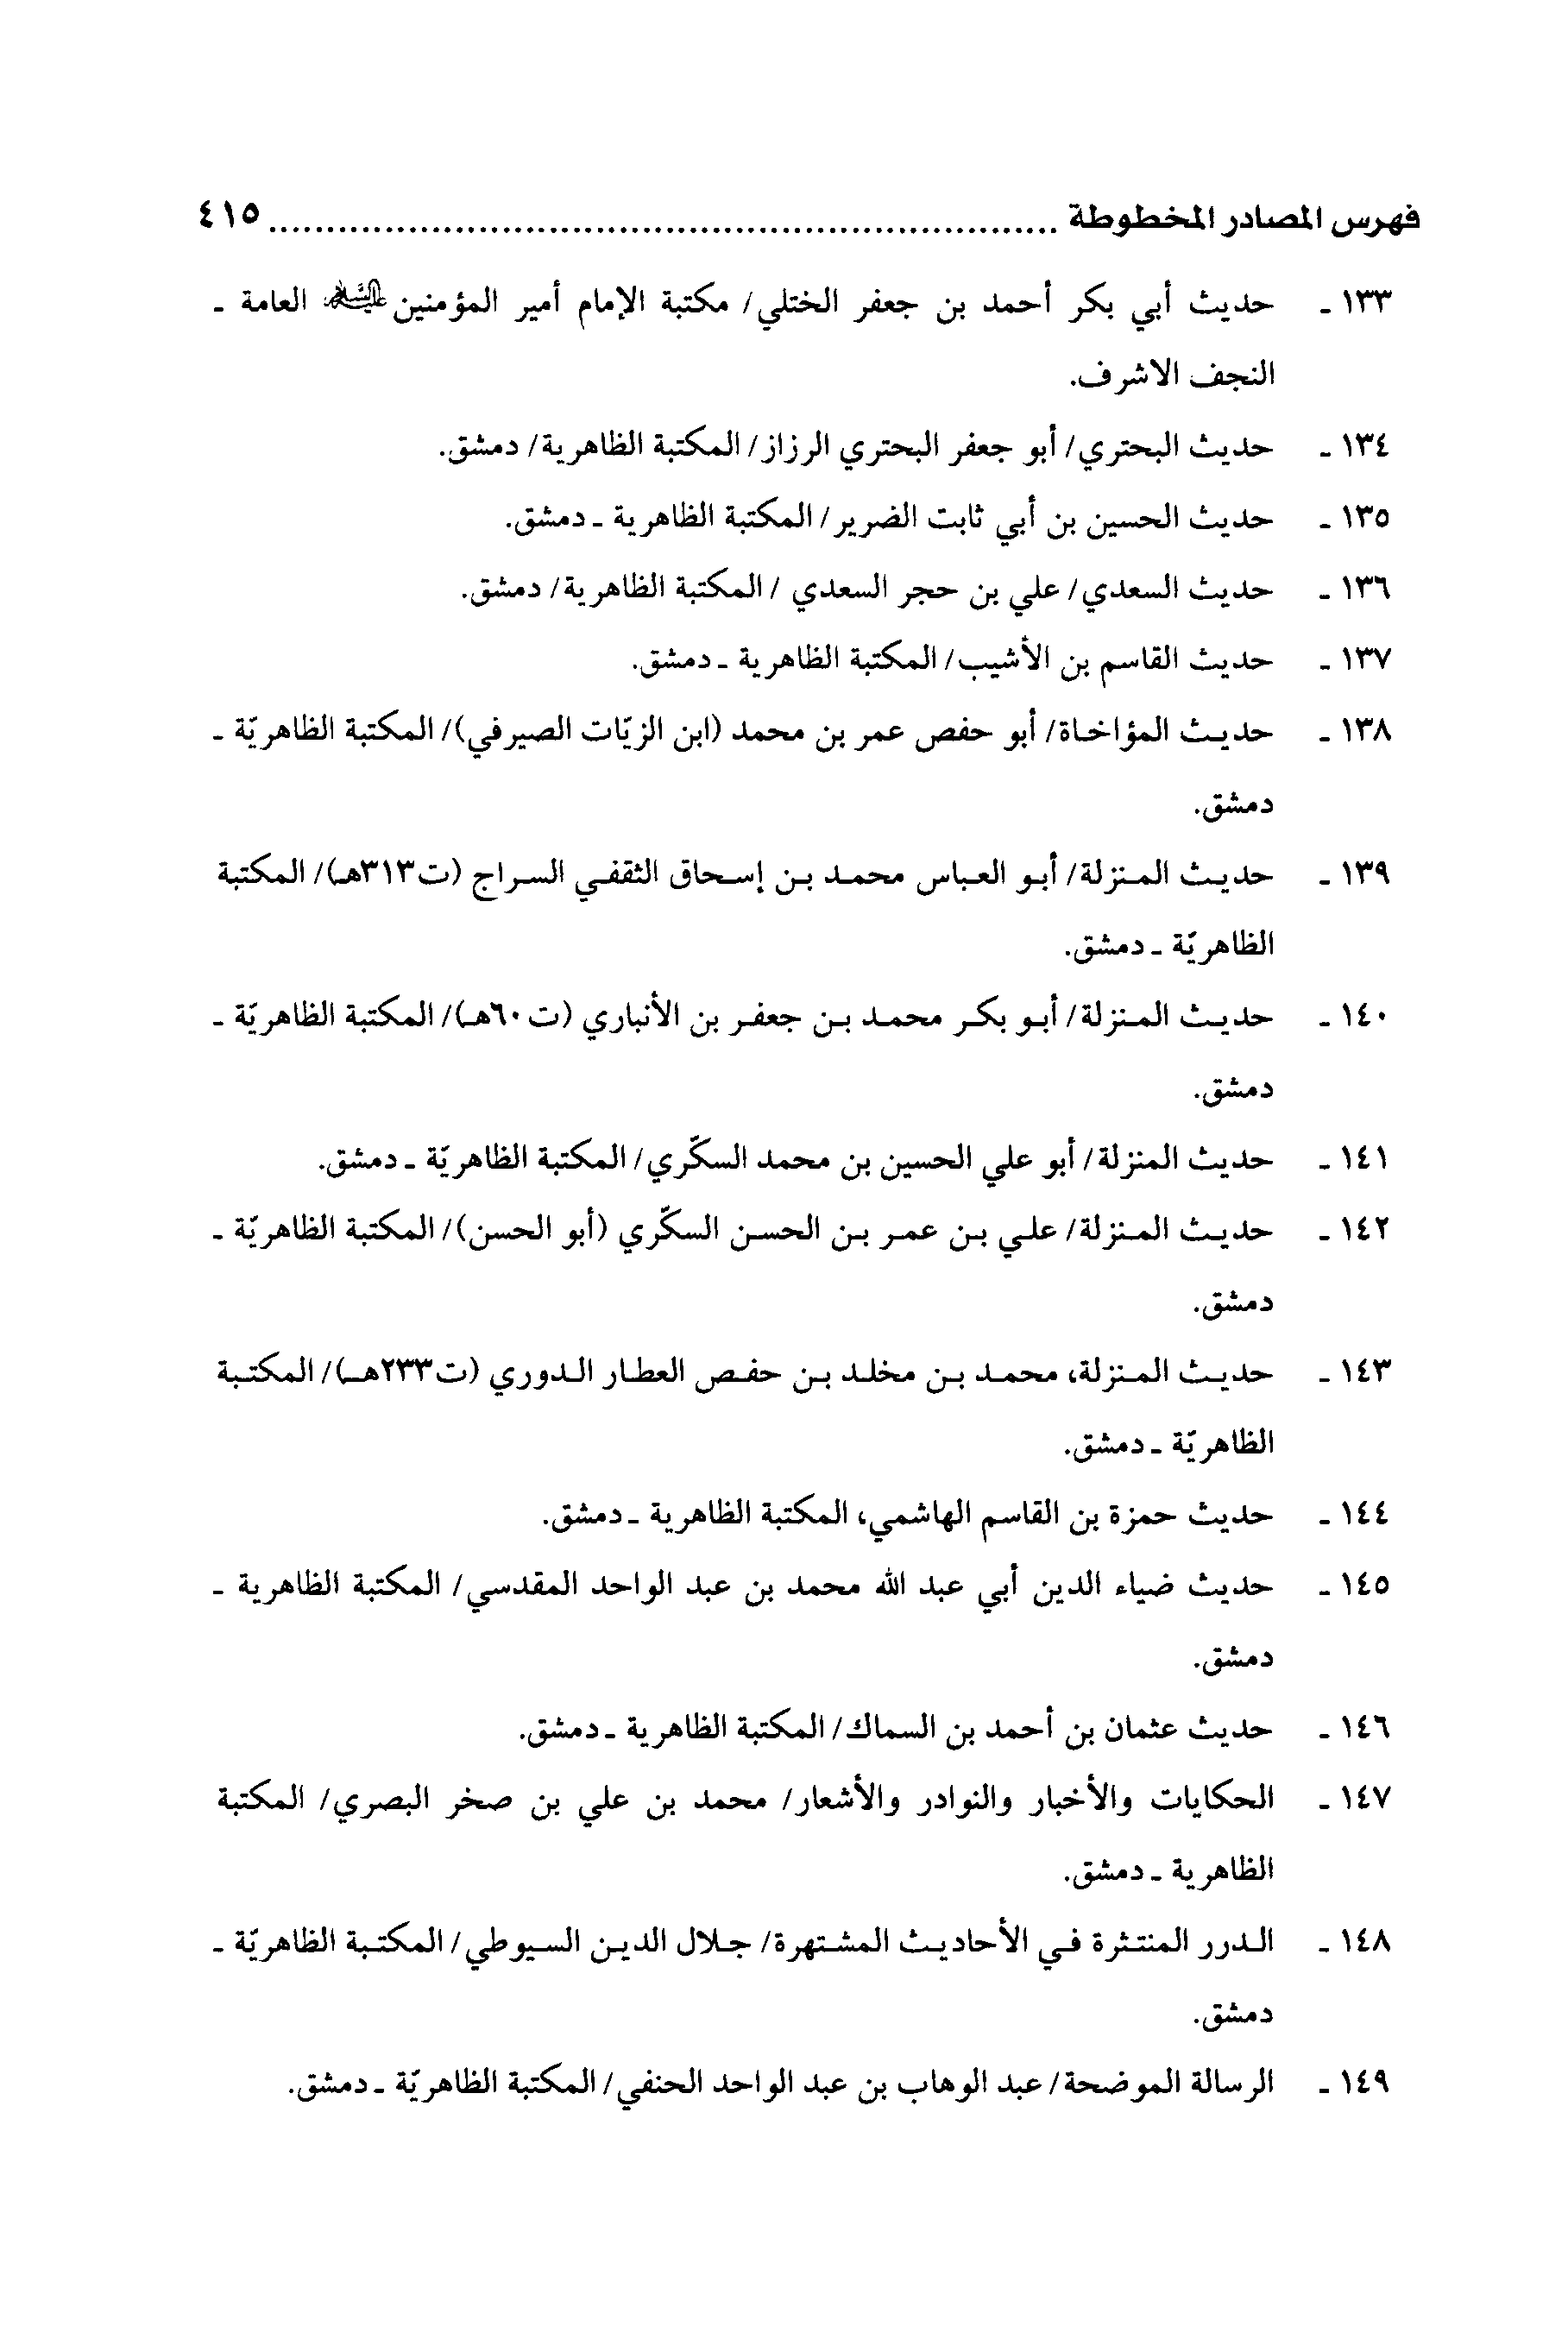 فهرس المصادر المخطوطة ................................................................ ٤١٥
١٣٣ ـ حديث أبي بكر أحمد بن جعفر الختلي/ مكتبة الإمام أمير المؤمنين عليه السلام العامة ـ
النجف الاشرف.
١٣٤ ـ حديث البحتري/ أبو جعفر البحتري الرزاز/ المكتبة الظاهرية/ دمشق.
١٣٥ ـ حديث الحسين بن أبي ثابت الضرير/ المكتبة الظاهرية ـ دمشق.
١٣٦ ـ حديث السعدي/ علي بن حجر السعدي / المكتبة الظاهرية/ دمشق.
١٣٧ ـ حديث القاسم بن الأشيب/ المكتبة الظاهرية ـ دمشق.
١٣٨ ـ حديث المؤاخاة/ أبو حفص عمر بن محمد (ابن الزيّات الصيرفي)/ المكتبة الظاهريّة ـ
دمشق.
١٣٩ ـ حديث المنزلة/ أبو العباس محمد بن إسحاق الثقفي السراج (ت٣١٣هـ)/ المكتبة
الظاهريّة ـ دمشق.
١٤٠ ـ حديث المنزلة/ أبو بكر محمد بن جعفر بن الأنباري (ت٦٠هـ)/ المكتبة الظاهريّة ـ
دمشق.
١٤١ ـ حديث المنزلة/ أبو علي الحسين بن محمد السكّري/ المكتبة الظاهريّة ـ دمشق.
١٤٢ ـ حديث المنزلة/ علي بن عمر بن الحسن السكّري (أبو الحسن)/ المكتبة الظاهريّة ـ
دمشق.
١٤٣ ـ حديث المنزلة، محمد بن مخلد بن حفص العطار الدوري (ت٢٣٣هـ)/ المكتبة
الظاهريّة ـ دمشق.
١٤٤ ـ حديث حمزة بن القاسم الهاشمي، المكتبة الظاهرية ـ دمشق.
١٤٥ ـ حديث ضياء الدين أبي عبد الله محمد بن عبد الواحد المقدسي/ المكتبة الظاهرية ـ
دمشق.
١٤٦ ـ حديث عثمان بن أحمد بن السماك/ المكتبة الظاهرية ـ دمشق.
١٤٧ ـ الحكايات والأخبار والنوادر والأشعار/ محمد بن علي بن صخر البصري/ المكتبة
الظاهرية ـ دمشق.
١٤٨ ـ الدرر المنتثرة في الأحاديث المشتهرة/ جلال الدين السيوطي/ المكتبة الظاهريّة ـ
دمشق.
١٤٩ ـ الرسالة الموضحة/ عبد الوهاب بن عبد الواحد الحنفي/ المكتبة الظاهريّة ـ دمشق.